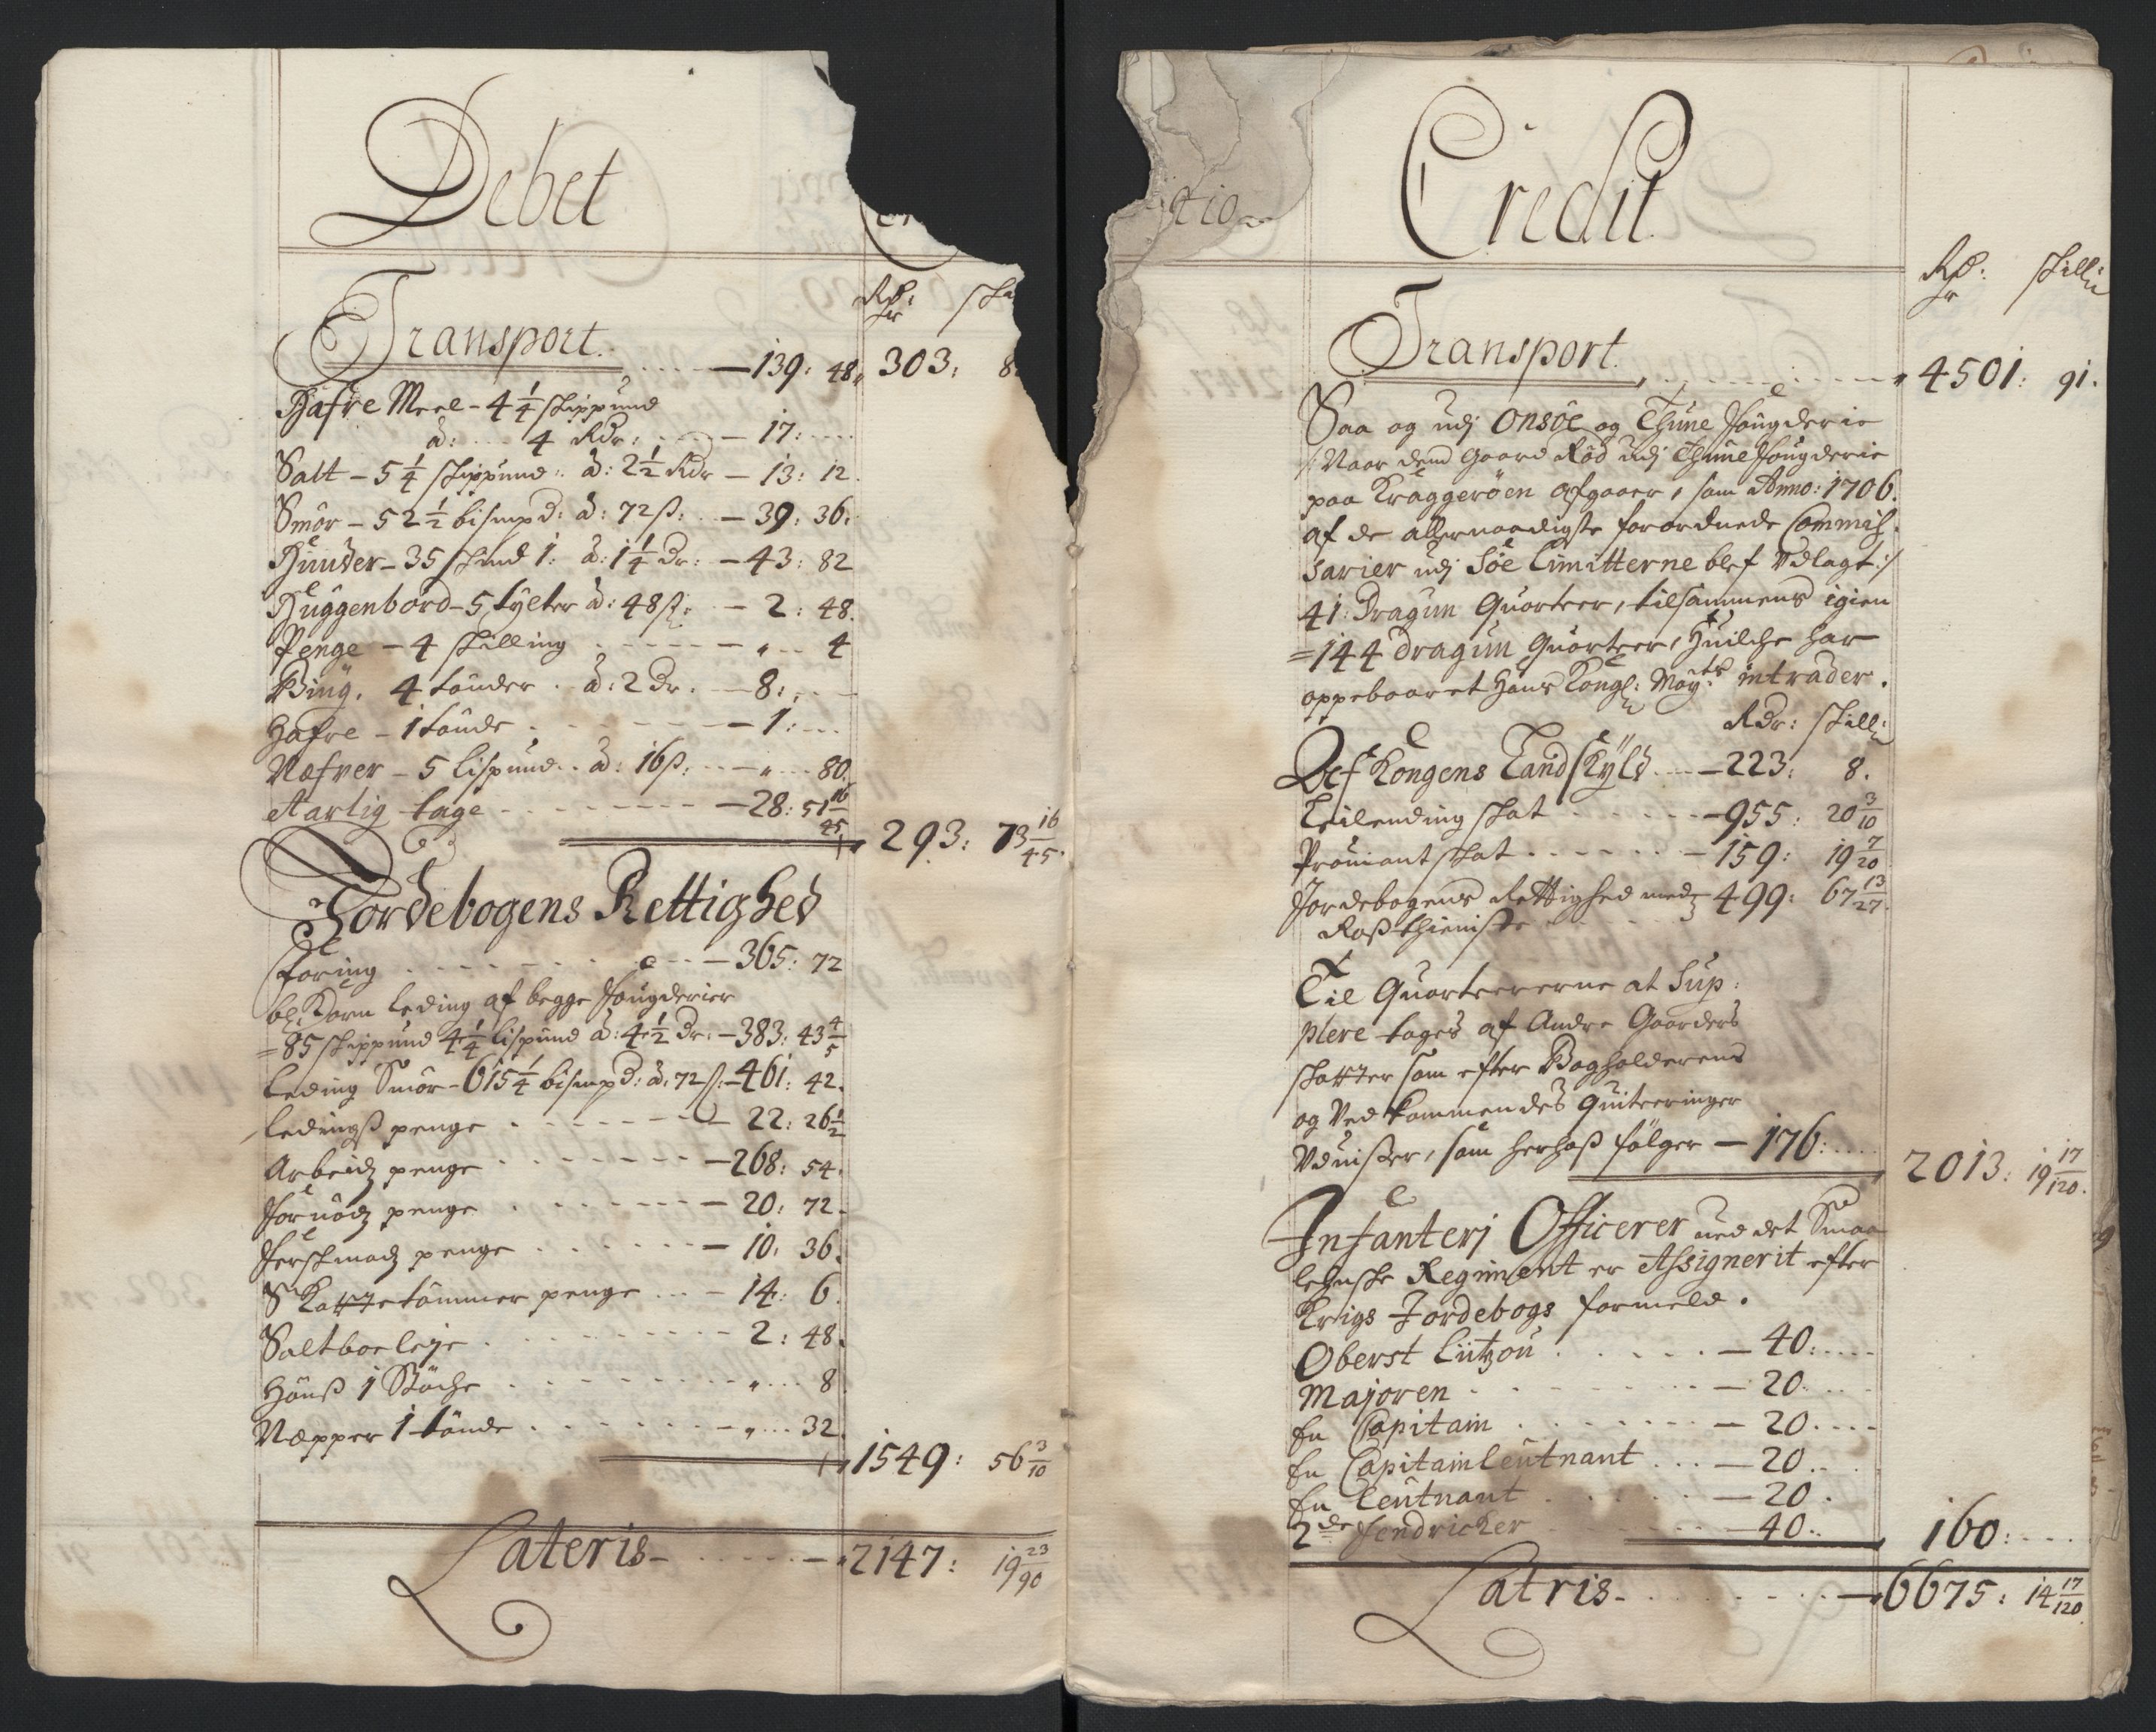 Debet
Rdr: ski
Transport. — 139: 48. 303: 8
Hafre Meel - 4 1/4 skippund
à: 4 Rdr: — 17:
Salt - 5 1/4 skippund: à: 2 1/2 Rdr — 13: 12.
Smör - 52 1/2 bismpd: à: 72 ß: — 39: 36:
Huuder - 35 1: à: 1 1/4 Dr: — 43: 82
Huggenbord - 5 tylter à: 48 ß: — 2: 48.
Penge - 4 skilling — " 4
Biug. 4 tönder. à: 2 Dr. — 8:
Hafre - 1 tönde — 1:
Næfver - 5 lispund. à: 16 ß: — " 80.
Aarlig tage — 28: 51 16/45 293: 73 16/45.
Jordebogens Rettighed
foring — 365: 72
bl. Korn leding af begge fougderier
= 85 skippund 4 1/4 lispund à: 4 1/2 Dr: — 383: 43 4/5
leding Smör - 615 1/4 bismpd: à: 72 ß: — 461: 42.
ledingß penge — 22: 26 1/2
Arbeidz penge — 268: 54.
fornödz penge — 20: 72.
ferskmadz penge — 10: 36.
Skattetömmer penge — 14: 6.
Saltboe leje — 2: 48.
Hönß 1 Stöche " 8
Næpper 1 tönde — " 32. 1549: 56 3/10
Lateris — 2147: 19 23/90
tio
Credit
Rdr: skill:
Transport. 4501: 91.
Saa og udj Onsöe og Thune fougderie
/: Naar dend Gaard Röd udj Thune fougderie
paa Kraggeröen afgaaer, som Anno: 1706.
af de allernaadigste forordnede Commis-
sarier udj Söe Limitterne blef Udlagt :/
41: Dragun Quarteer, tilsammens igien
= 144 Dragun Quarteer, Huilche har
oppebaaret Hans Kongl: Mayts: intrader.
Rdr: skill:
Af Kongens Landskyld — 223: 8.
Leilending skat — 955: 20 3/10
Prouiant skat — 159: 19 7/20
Jordebogens Rettighed medz 499: 67 13/27.
Roßthieniste
Til Quarteererne at Sup:
plere tages af Andre Gaarders
skatter som efter Bogholderens
og Vedkommendes Quiteeringer
Udviiser, som herhoß fölger — 176: 2013: 19 17/120.
Infanterj Officerer ued det Smaa
lehnske Regiment er Assignerit efter
Krigs Jordebogs formeld.
Oberst Lützou — 40:
Majoren — 20.
En Capitain — 20.
En Capitainleutnant — 20.
En leutnant — 20.
2de fendricker — 40. 160:
Latris — 6675: 14 17/120.